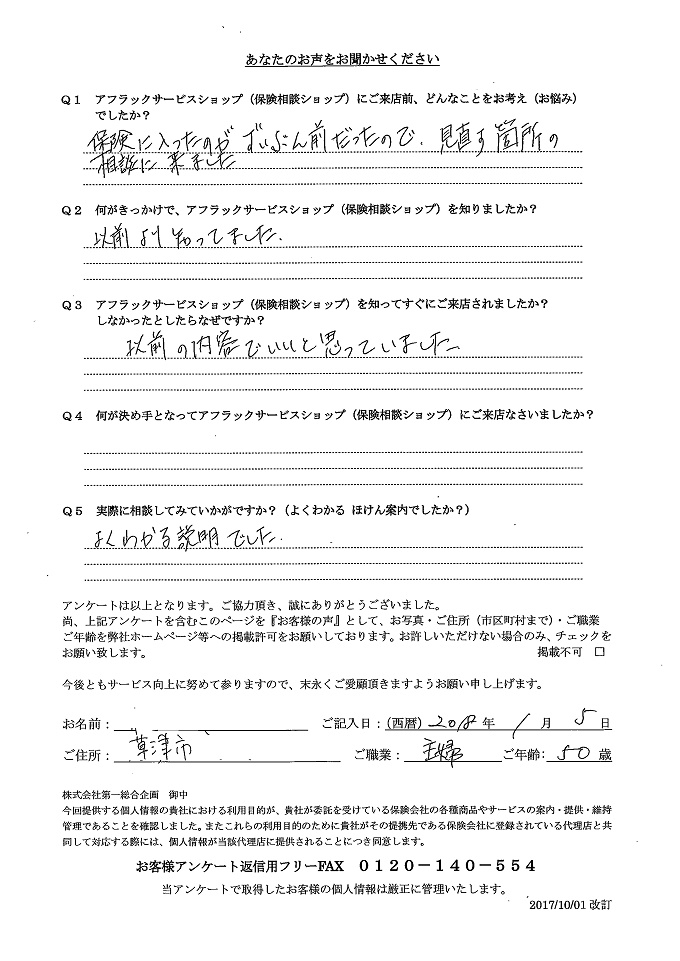 あなたのお声をお聞かせください
Q1 アフラックサービスショップ(保険相談ショップ)にご来店前、どんなことをお考え(お悩み)
でしたか?
保険に入ったのがずいぶん前だったので、見直す箇所の
相談に来ました
Q2 何がきっかけで、アフラックサービスショップ(保険相談ショップ)を知りましたか?
以前より知ってました.
Q3 アフラックサービスショップ(保険相談ショップ)を知ってすぐにご来店されましたか?
しなかったとしたらなぜですか?
以前の内容でいいと思っていました
Q4 何が決め手となってアフラックサービスショップ(保険相談ショップ)にご来店なさいましたか?
Q5 実際に相談してみていかがですか?(よくわかる ほけん案内でしたか?)
よくわかる説明でした.
アンケートは以上となります。ご協力頂き、誠にありがとうございました。
尚、上記アンケートを含むこのページを『お客様の声』として、お写真・ご住所(市区町村まで)・ご職業
ご年齢を弊社ホームページ等への掲載許可をお願いしております。お許しいただけない場合のみ、チェックを
お願い致します。 掲載不可 □
今後ともサービス向上に努めて参りますので、末永くご愛顧頂きますようお願い申し上げます。
お名前: ご記入日:(西暦) 2018 年 1 月 5 日
ご住所: 草津市 ご職業: 主婦 ご年齢: 50 歳
株式会社第一総合企画 御中
今回提供する個人情報の貴社における利用目的が、貴社が委託を受けている保険会社の各種商品やサービスの案内・提供・維持
管理であることを確認しました。またこれらの利用目的のために貴社がその提携先である保険会社に登録されている代理店と共
同して対応する際には、個人情報が当該代理店に提供されることにつき同意します。
お客様アンケート返信用フリーFAX 0120-140-554
当アンケートで取得したお客様の個人情報は厳正に管理いたします。
2017/10/01 改訂